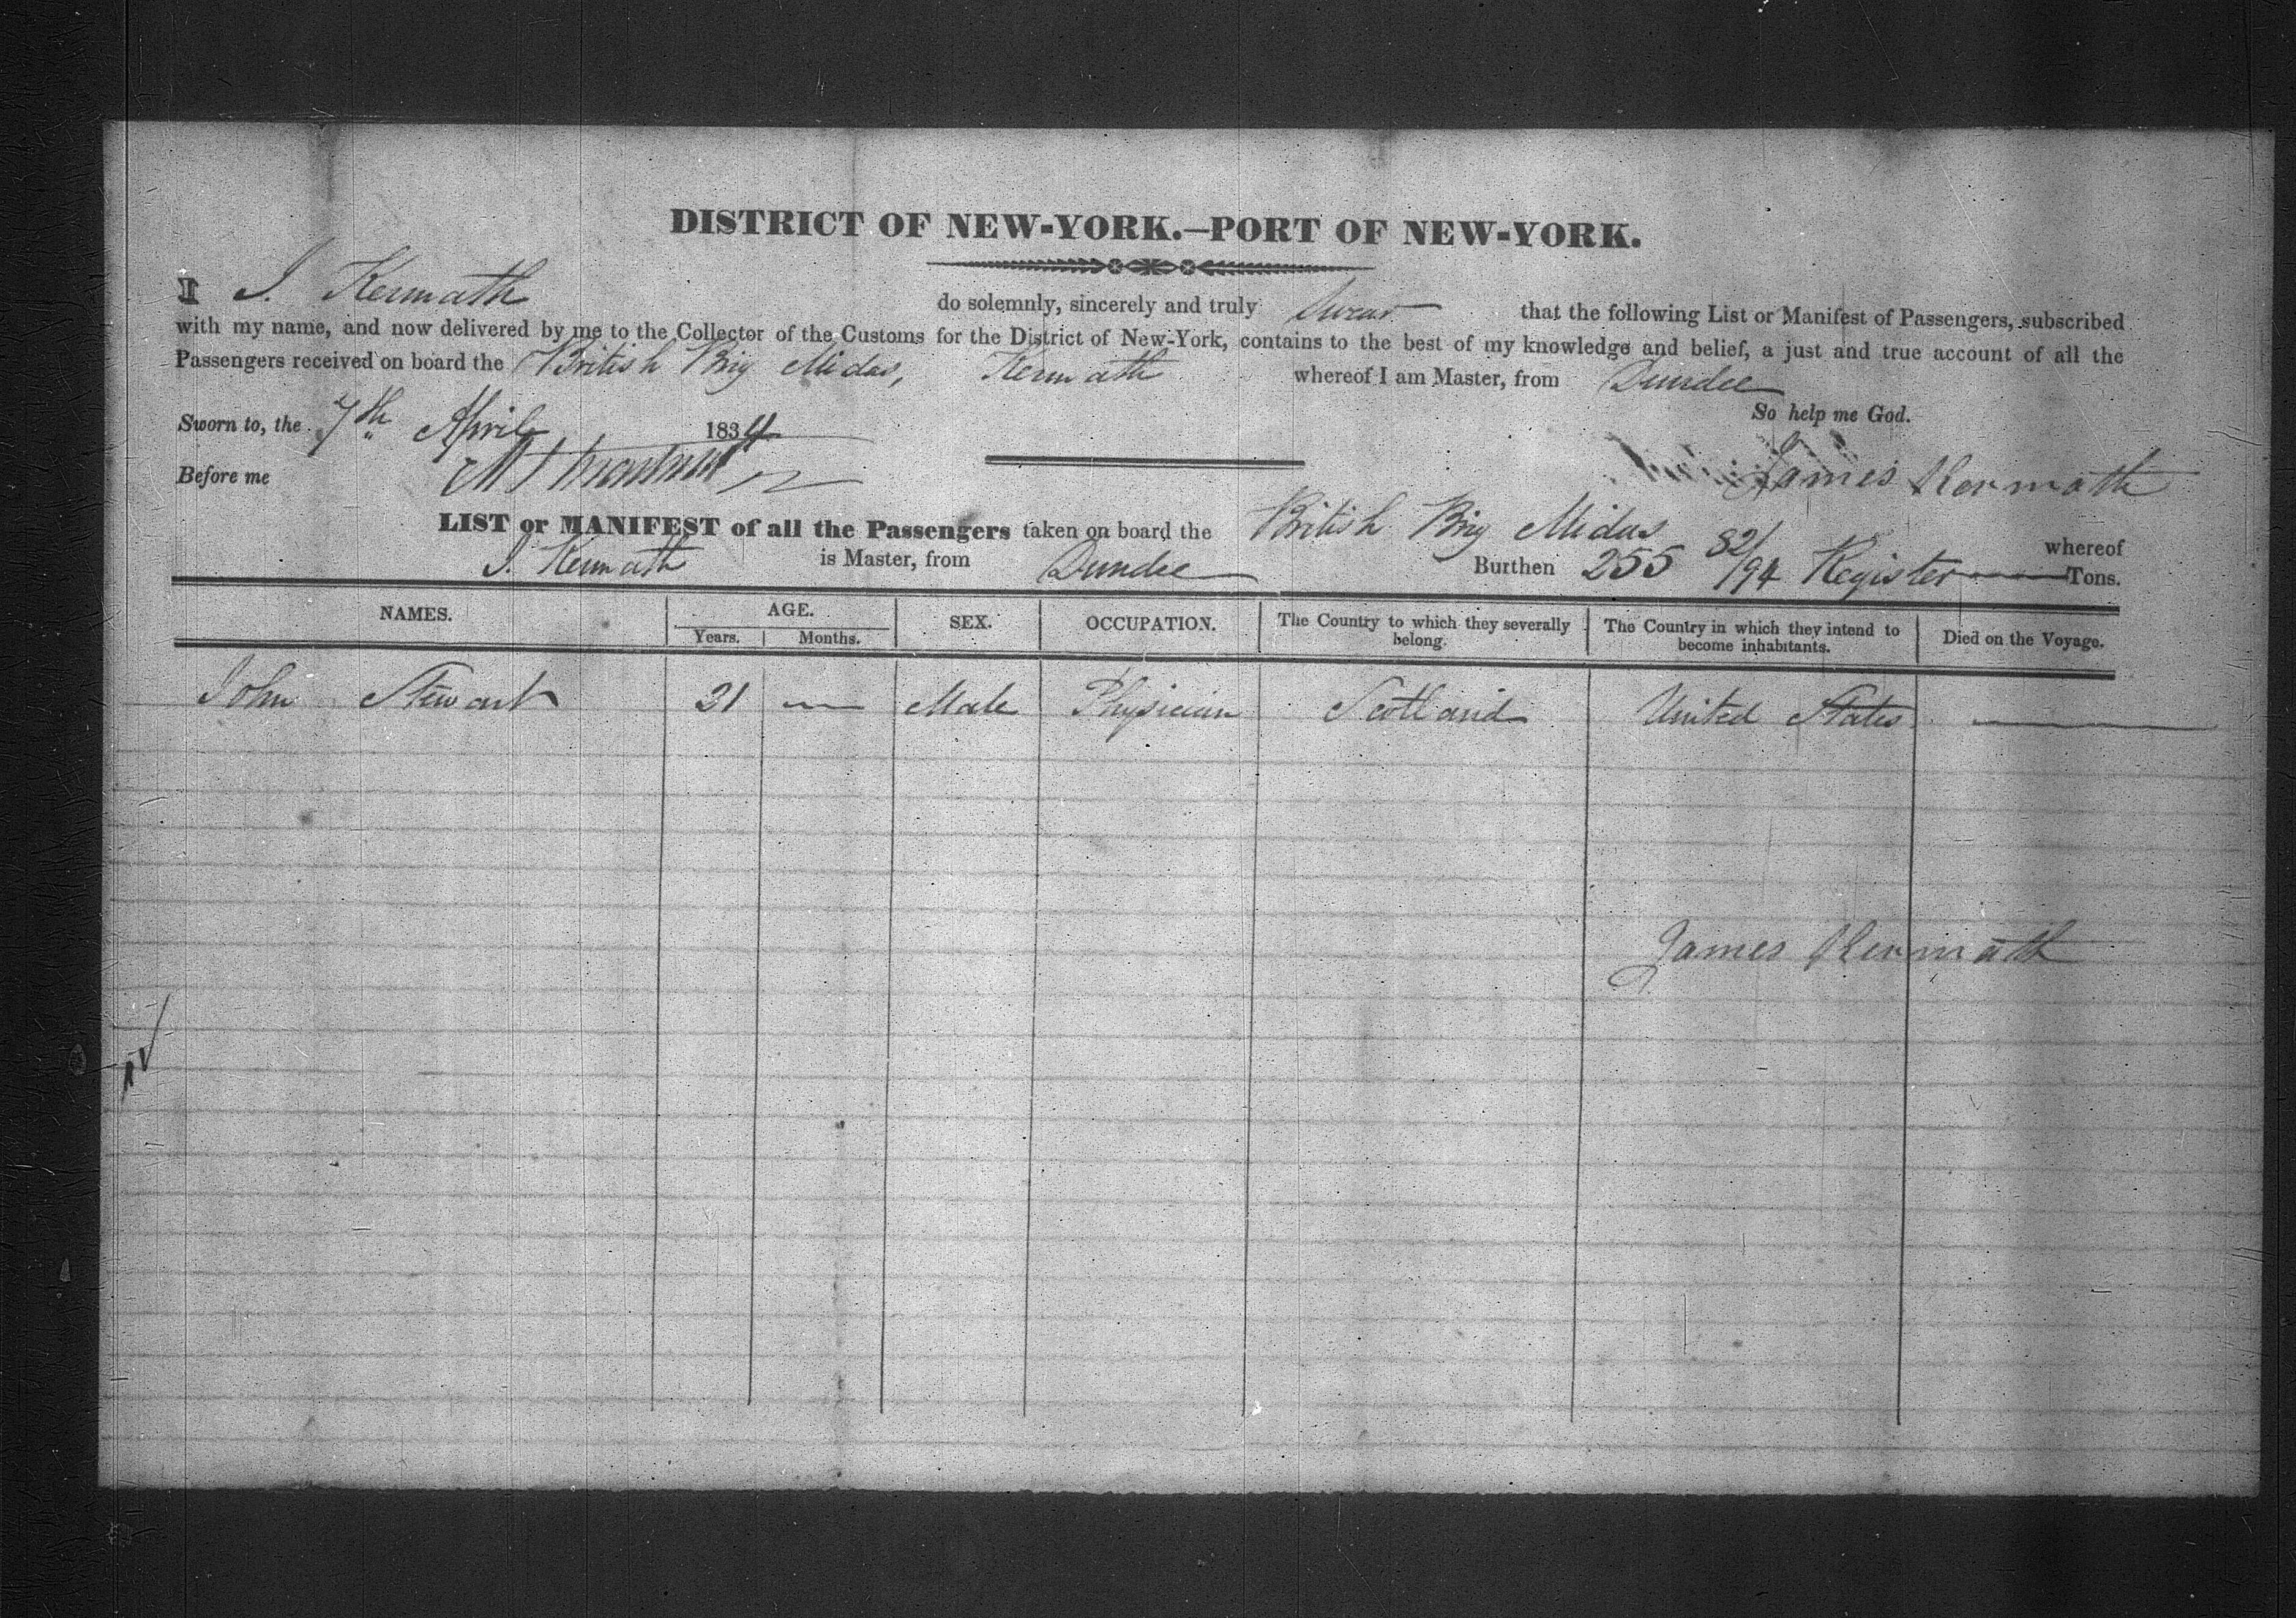 DISTRICT OF NEW-YORK.—PORT OF NEW-YORK.
I J. Kermath do solemnly, sincerely and truly Swear that the following List or Manifest of Passengers, subscribed
with my name, and now delivered by me to the Collector of the Customs for the District of New-York, contains to the best of my knowledge and belief, a just and true account of all the
Passengers received on board the British Brig Midas, Kermath whereof I am Master, from Dundee
So help me God.
Sworn to, the 7th April 1834
James Kermath
Before me
LIST or MANIFEST of all the Passengers taken on board the British Brig Midas whereof
J. Kermath is Master, from Dundee Burthen 255 82/94 Register Tons.
NAMES. AGE. SEX. OCCUPATION. The Country to which they severally belong. The Country in which they intend to become inhabitants. Died on the Voyage.
Years. Months.
John Stewart 21 — Male Physician Scotland United States —
James Kermath